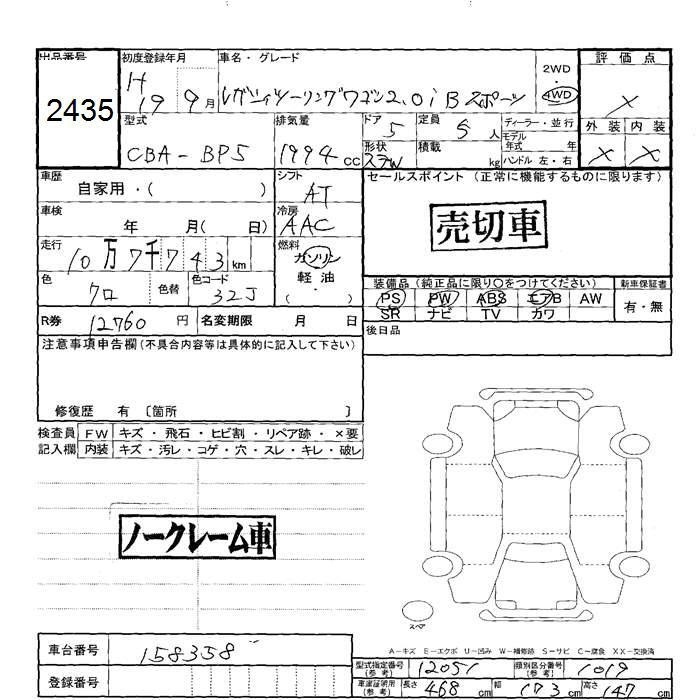 出品番号 初度登録年月 車名・グレード 評価点
2435
H19 9月
レガシィツーリングワゴン2.0i Bスポーツ
2WD
4WD
×
型式 排気量 ドア 5 定員 5人 ディーラー・並行 外装 内装
CBA-BP5 1994cc 形状 ステW 積載 kg モデル年式 年 × ×
ハンドル 左・右
車歴 自家用・( ) シフト AT セールスポイント (正常に機能するものに限ります)
車検 年 月( 日) 冷房 AAC
売切車
走行 10万7千743km 燃料 ガソリン
軽油
( ・ )
色 クロ 色替 色コード 32J
装備品(純正品に限り○をつけてください) 新車保証書
PS PW ABS エアB AW 有・無
SR ナビ TV カワ
R券 12760円 名変期限 月 日 後日品
注意事項申告欄(不具合内容等は具体的に記入して下さい)
修復歴 有 〔箇所 〕
検査員 FW キズ・飛石・ヒビ割・リペア跡・×要
記入欄 内装 キズ・汚レ・コゲ・穴・スレ・キレ・破レ
ノークレーム車
スペア
A-キズ E-エクボ U-凹み W-補修跡 S-サビ C-腐食 XX-交換済
車台番号 158358
型式指定番号(参考) 12051 類別区分番号(参考) 1019
登録番号
車庫証明用(参考) 長さ 468cm 幅 173cm 高さ 147cm